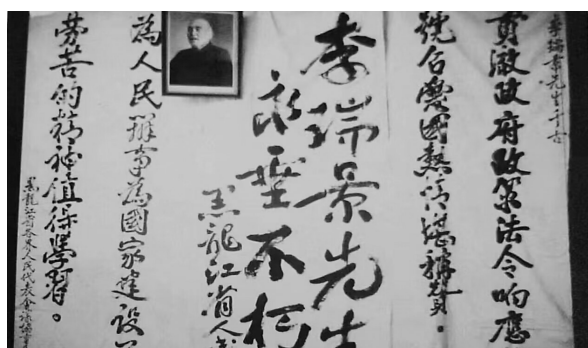 李瑞景先生千古
貫澈政府政策法令响應
號召愛國熱情堪稱賢。
李瑞景先生
永垂不朽
黑龍江省人
為人民辦事為國家建設
勞苦的精神值得學習。
黑龍江省各界人民代表會